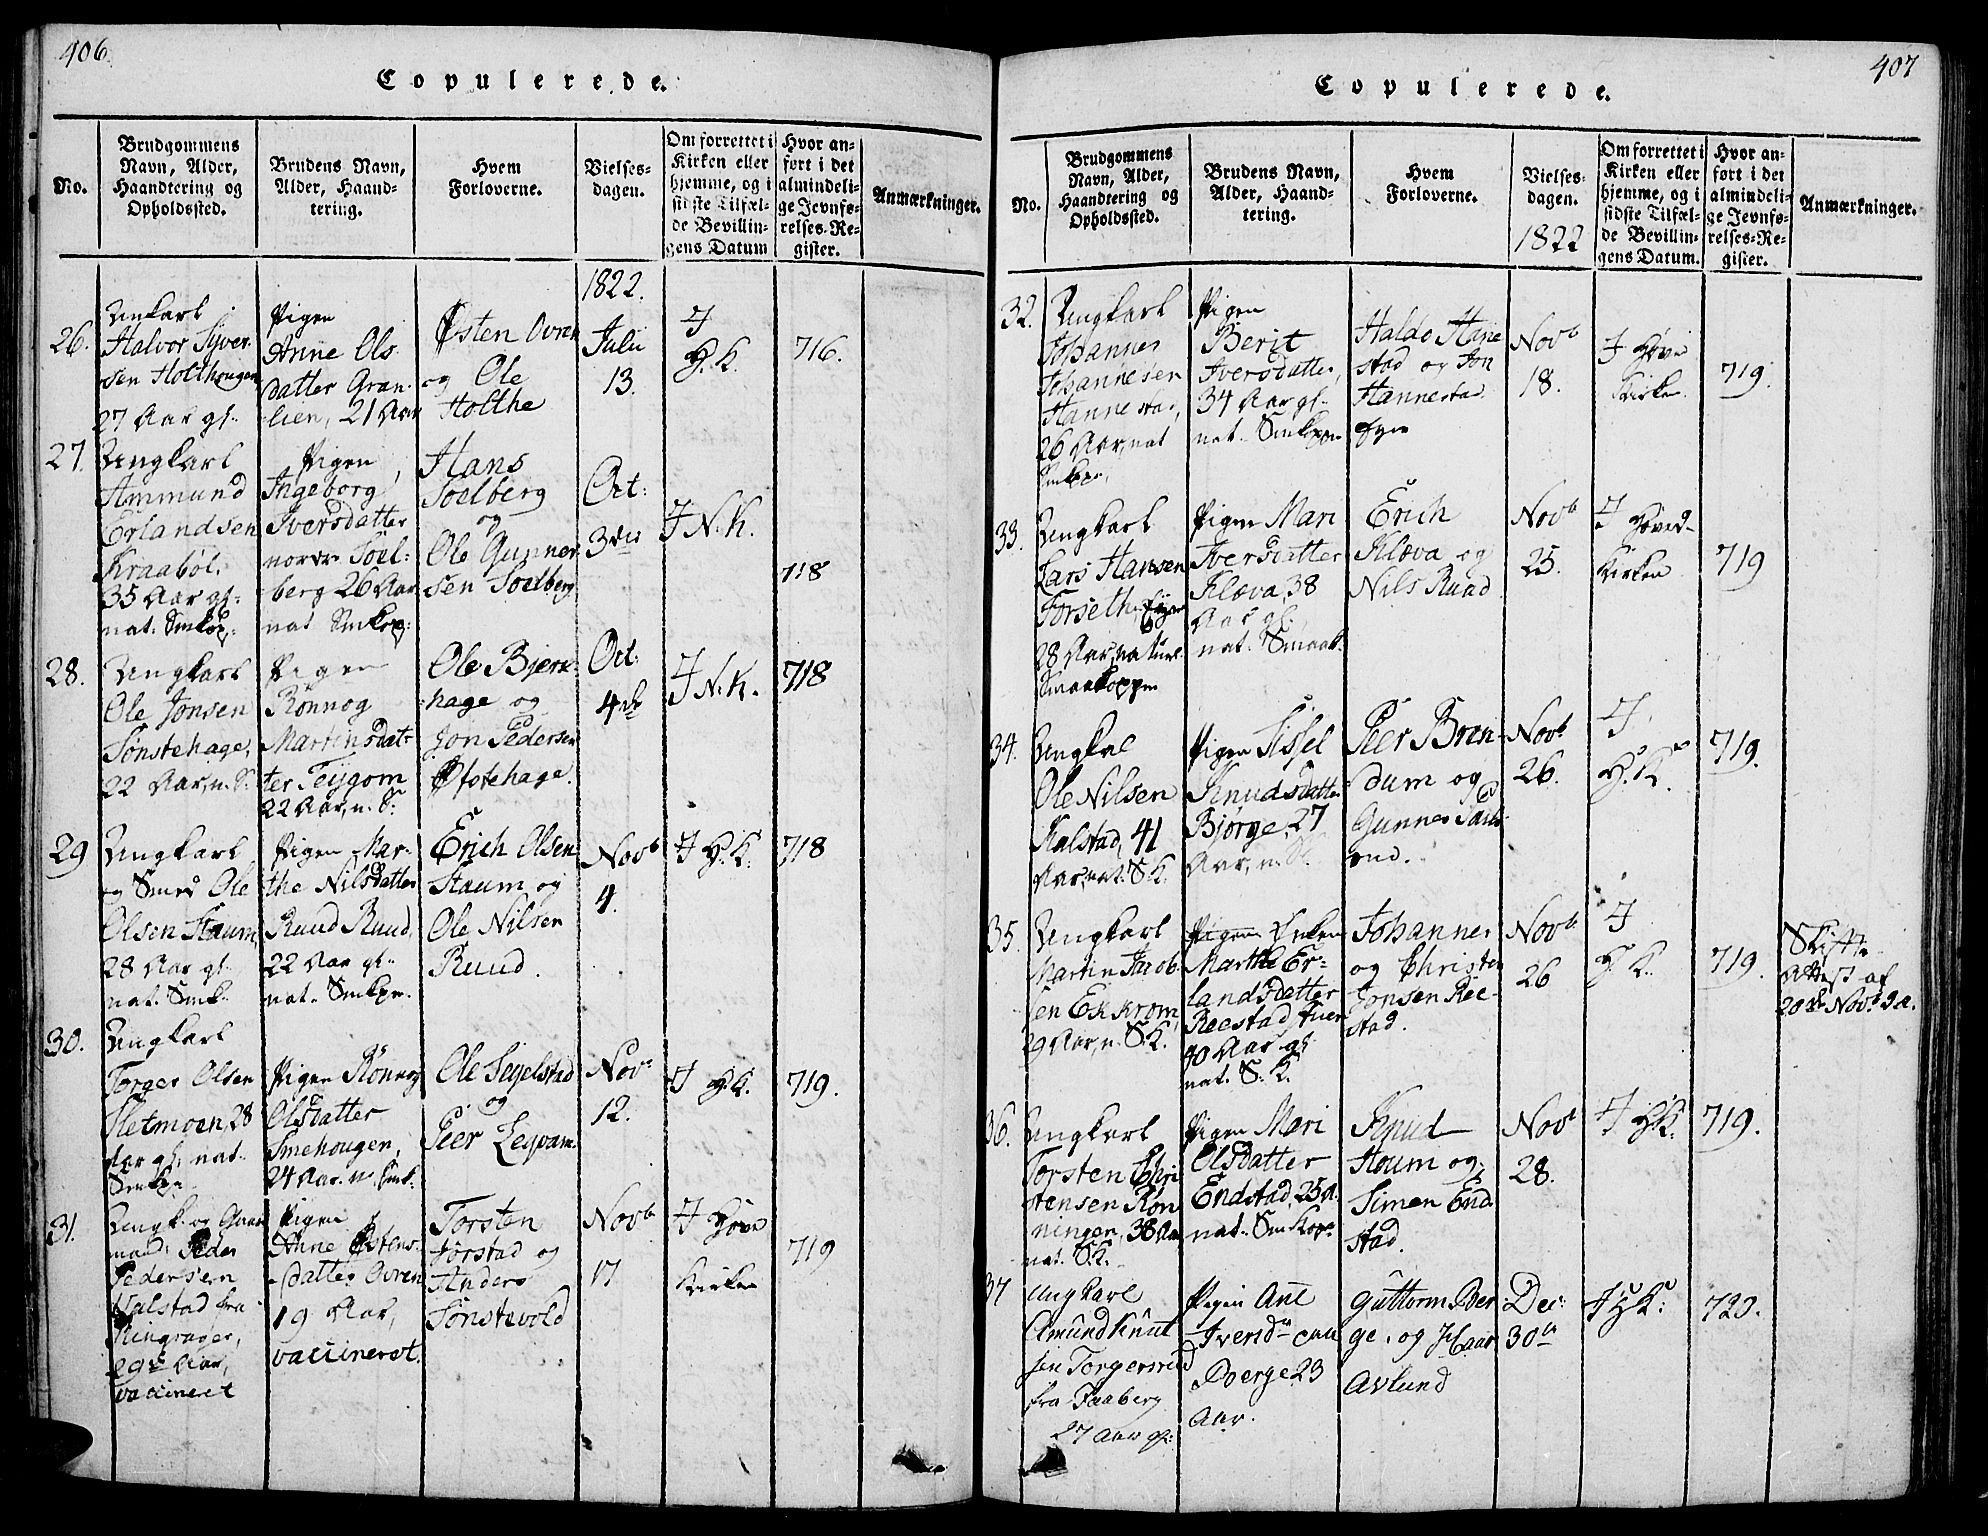 406
Copulerede.
No.
Brudgommens
Navn, Alder,
Haandtering og
Opholdssted.
Brudens Navn,
Alder, Haand-
tering.
Hvem
Forloverne.
Vielses-
dagen.
Om forrettet i
Kirken eller
hjemme, og i
sidste Tilfæl-
de Bevillin-
gens Datum
Hvor an-
ført i det
almindeli-
ge Jevnfø-
relses-Re-
gister.
Anmærkninger.
1822.
26.
Halvor Syver
sen Holthougen
27 Aar gl.
Pigen
Anne Ols
datter Gran-
lien, 21 Aar
Østen Ovren
og Ole
Holthe
Julii
13.
I
H. K.
716.
27.
Ungkarl
Ammund
Erlandsen
Kraabøl.
35 Aar gl.
nat. Smkop.
Pigen
Ingeborg
Iversdatter
nordre Soel-
berg 26 Aar
nat Smkop:
Hans
Soelberg
og
Ole Gunner
sen Soelberg
Oct:
3die
I N. K.
718
28.
Ungkarl
Ole Jonsen
Sønstehage,
22 Aar, n. S.
Pigen
Rønnog
Martinsdat-
ter Tejgom
22 Aar, n. S:
Ole Bjerke-
hage og
Jon Pedersen
Øfstehage.
Oct:
4de
I N. K.
718
29
Ungkarl
og Smed Ole
Olsen Staum,
28 Aar gl.
nat. Smk.
Pigen Mar-
the Nilsdatter
Ruud Ruud,
22 Aar gl.
nat. Smkpr.
Erich Olsen
Staum og
Ole Nilsen
Ruud.
Novb
4.
I H. K.
718
30.
Ungkarl
Torger Olsen
Sletmoen, 28
Aar gl. nat.
Smkpr.
Pigen Rönnog
Olsdatter
Smehougen,
24 Aar. n. Smk.
Ole Segelstad
og
Peer Legvam
Novr
12.
I H. K.
719.
31.
Ungk. og Gaar
mand Peder
Pedersen
Valstad fra
Ringsager,
29 Aar,
vaccineret
Pigen
Anne Østens-
datter Ovren
19 Aar,
vaccineret.
Torsten
Jørstad og
Anders
Sønstevold
Novb
17
I Hoved
Kirken
719
407
Copulerede.
No.
Brudgommens
Navn, Alder,
Haandtering og
Opholdssted.
Brudens Navn,
Alder, Haand-
tering.
Hvem
Forloverne.
Vielses-
dagen.
1822
Om forrettet i
Kirken eller
hjemme, og i
sidste Tilfæl-
de Bevillin-
gens Datum.
Hvor an-
ført i det
almindeli-
ge Jevnfø-
relses-Re-
gister.
Anmærkninger.
32.
Ungkarl
Johannes
Johannesen
Hannestad,
26 Aar, nat
Smkpr.
Pigen
Berit
Iversdatter,
34 Aar gl.
nat. Smkopr
Haldo Hane
stad og Jon
Hannestad
Novb
18.
I Hoved
Kirken.
719.
33.
Ungkarl
Lars Hansen
Forseth,
28 Aar, naturl.
Smaakopper
Pigen Mari
Iversdatter
Klæva, 38
Aar gl.
nat. Smaak.
Erich
Klæva og
Nils Ruud
Novb
25.
I Hoved-
Kirken
719
34.
Ungkal
Ole Nilsen
Kalstad, 41
Aar, nat. S. K.
Pigen Sissel
Knudsdatter
Bjørge, 27
Aar, n. S.
Peer Bren-
dum og
Novb
26.
I
H. K.
719.
35.
Ungkarl
Martin Jacob
sen Ekkrom,
29 Aar, n. S. K.
Pigen Enken
Marthe Er-
landsdatter
Reestad
40 Aar gl
nat. S. K.
Johannes
og Christen
Jonsen Ree-
stad.
Novb
26
I
H. K.
719.
Skifte-
Attest af
20de Novb d. a.
36.
Ungkarl
Torsten Chri
stensen Røn
ningen, 38 Aar
nat. S. K.
Pigen Mari
Olsdatter
Endstad, 25 A.
nat. Smkopr
Knud
Houm og
Simen End
stad.
Novb
28.
I H. K.
719.
37
Ungkarl
Amund Knut
sen Torgersrud
fra Faaberg
27 Aar gl.
Pigen Ane
Iversdr
Doerge 23
Aar.
Guttorm Ber
ge. og Haar
Avlund
Dec:
30te
I H K:
720.